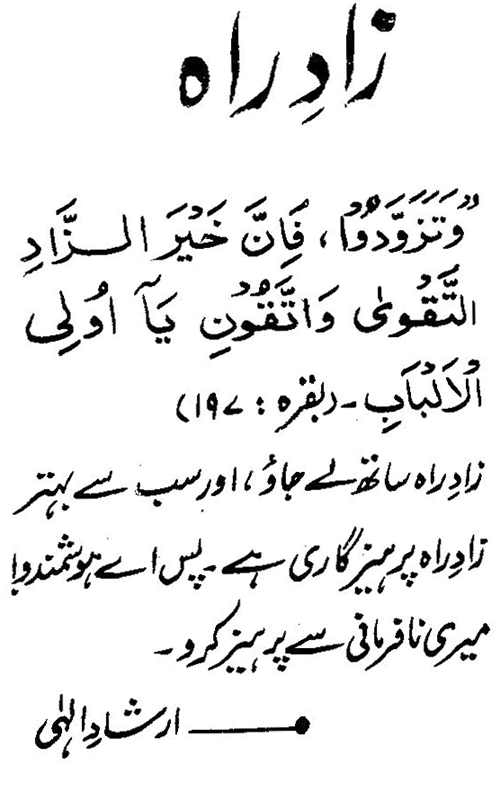 زادِ راہ
”وَتَزَوَّدُوْا، فَاِنَّ خَیْرَ الــزَّادِ
التَّقْوٰی وَاتَّقُوْنِ یَآ اُولِی
الْاَلْبَابِ ۔ (بقرہ : ۱۹۷)
زادِ راہ ساتھ لے جاؤ، اور سب سے بہتر
زادِ راہ پرہیز گاری ہے۔ پس اے ہوشمندو!
میری نافرمانی سے پرہیز کرو ۔
ارشادِ الٰہی